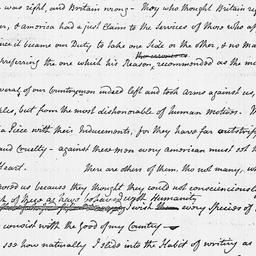 was right, and Britain wrong – They who thought Britain rig
, & america had a just Claim to the Services of those who ap
nce it became our Duty to take one Side or the other, & no ma
preferring the one which his Reason recommended as the m
veral of our Countrymen indeed left and took arms against us,
les, but from the most dishonorable of human motives.
a Piece with their Inducements, for they have far outstrip
and Cruelty – against these men every american must set h
Heart. There are others of them, tho not many, w
posed us because they thought they could not conscientiously
of these as have behaved with Humanity
wish them every Species of
consist with the Good of my Country
see how naturally I slide into the Habit of writing as